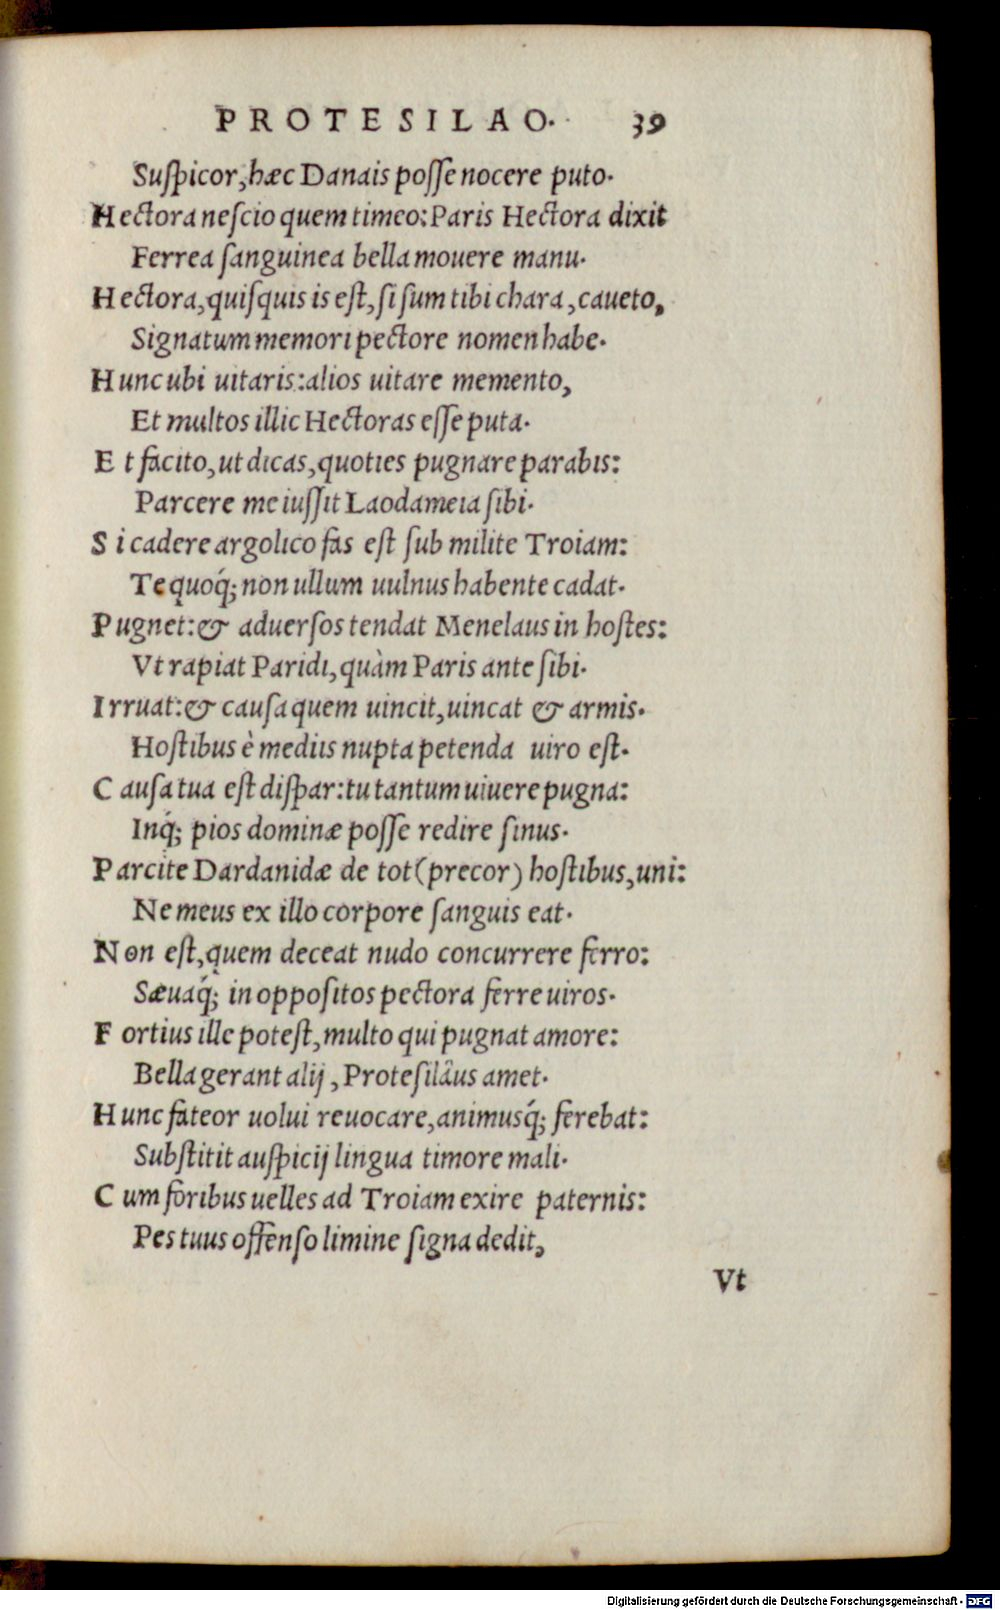 PROTESILAO. 39
Suſpicor, hæc Danais poſſe nocere puto.
Hectora neſcio quem timeo: Paris Hectora dixit
Ferrea ſanguinea bella mouere manu.
Hectora, quiſquis is eſt, ſi ſum tibi chara, caueto,
Signatum memori pectore nomen habe.
Hunc ubi uitaris: alios uitare memento,
Et multos illic Hectoras eſſe puta.
Et facito, ut dicas, quoties pugnare parabis:
Parcere me iuſſit Laodameia ſibi.
Si cadere argolico fas eſt ſub milite Troiam:
Te quoq́; non ullum uulnus habente cadat.
Pugnet: & aduerſos tendat Menelaus in hoſtes:
Vt rapiat Paridi, quàm Paris ante ſibi.
Irruat: & cauſa quem uincit, uincat & armis.
Hoſtibus è mediis nupta petenda uiro eſt.
Cauſa tua eſt diſpar: tu tantum uiuere pugna:
Inq́; pios dominæ poſſe redire ſinus.
Parcite Dardanidæ de tot (precor) hoſtibus, uni:
Ne meus ex illo corpore ſanguis eat.
Non eſt, quem deceat nudo concurrere ferro:
Sæuaq́; in oppoſitos pectora ferre uiros.
Fortius ille poteſt, multo qui pugnat amore:
Bella gerant alij, Proteſilâus amet.
Hunc fateor uolui reuocare, animusq́; ferebat:
Subſtitit auſpicij lingua timore mali.
Cum foribus uelles ad Troiam exire paternis:
Pes tuus offenſo limine ſigna dedit,
Vt
Digitalisierung gefördert durch die Deutsche Forschungsgemeinschaft - DFG